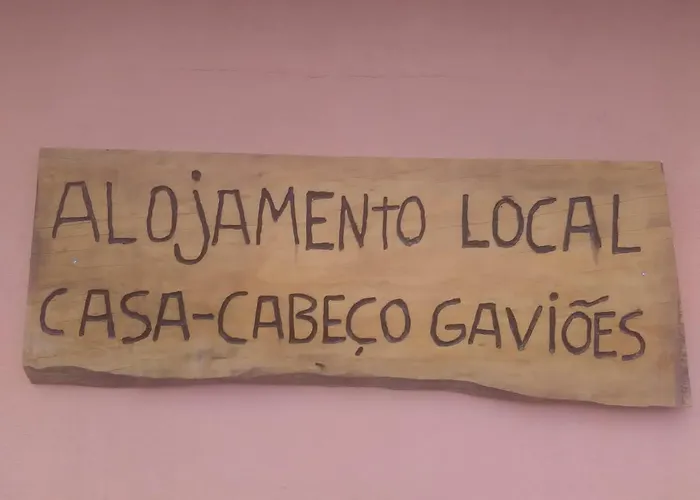 ALOjAMENtO LOCAL
CASA-CABEÇO GAViÕES